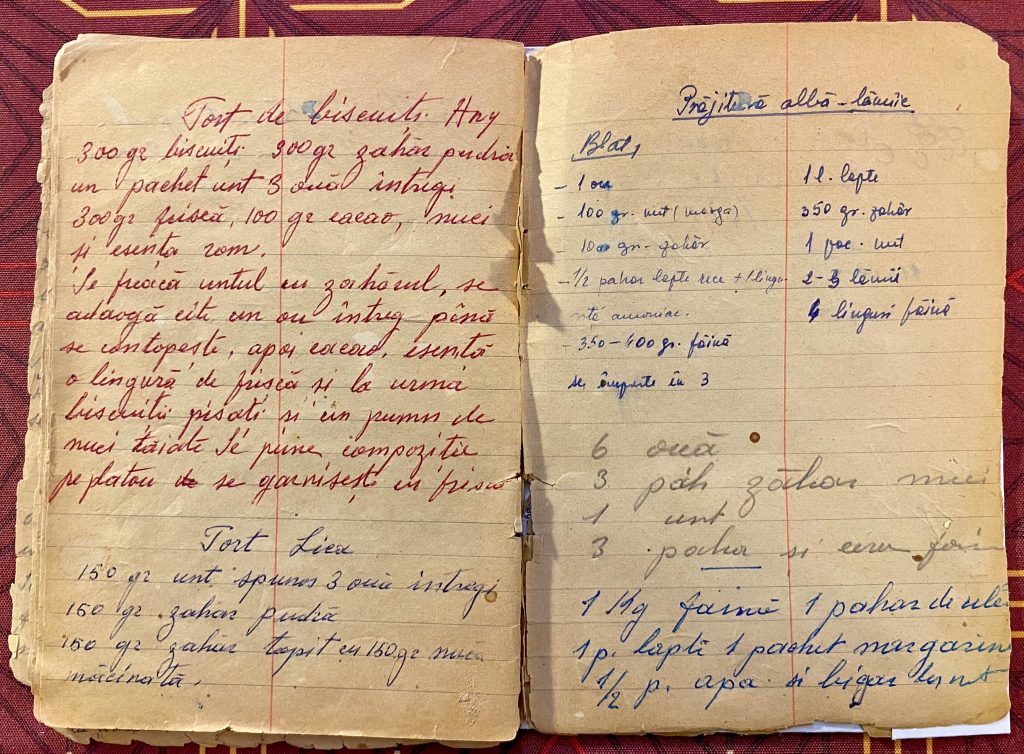 Tort de biscuiti Any
300gr biscuiți 300gr zahăr pudră
un pachet unt 3 ouă întregi
300gr frișcă, 100 gr cacao, nuci
și esența rom.
Se freacă untul cu zahărul, se
adaogă cîte un ou întreg pînă
se contopește, apoi cacao, esență
o lingură de frișcă și la urmă
biscuiții pisați și un pumn de
nuci tăiate Se pune compoziția
pe platou se garnisește cu frișcă
Tort Lica
150 gr unt spumos 3 ouă întregi
150 gr zahăr pudră
150 gr zahăr topit cu 150 gr nucă
măcinată.
Prăjitură albă - lămîie
Blat,
- 1 ou
- 100 gr. unt (marga)
- 100 gr. zahăr
- 1/2 pahar lapte rece + 1 lingu
riță amoniac.
- 350 - 400 gr. făină
se împarte în 3
1 l. lapte
350 gr. zahăr
1 pac. unt
2-3 lămîi
4 linguri făină
6 ouă
3 pah zăhar mici
1 unt
3 paha si
1 Kg faină 1 pahar de ulei
1 p. lapti 1 pachet margarina
1/2 p. apa si